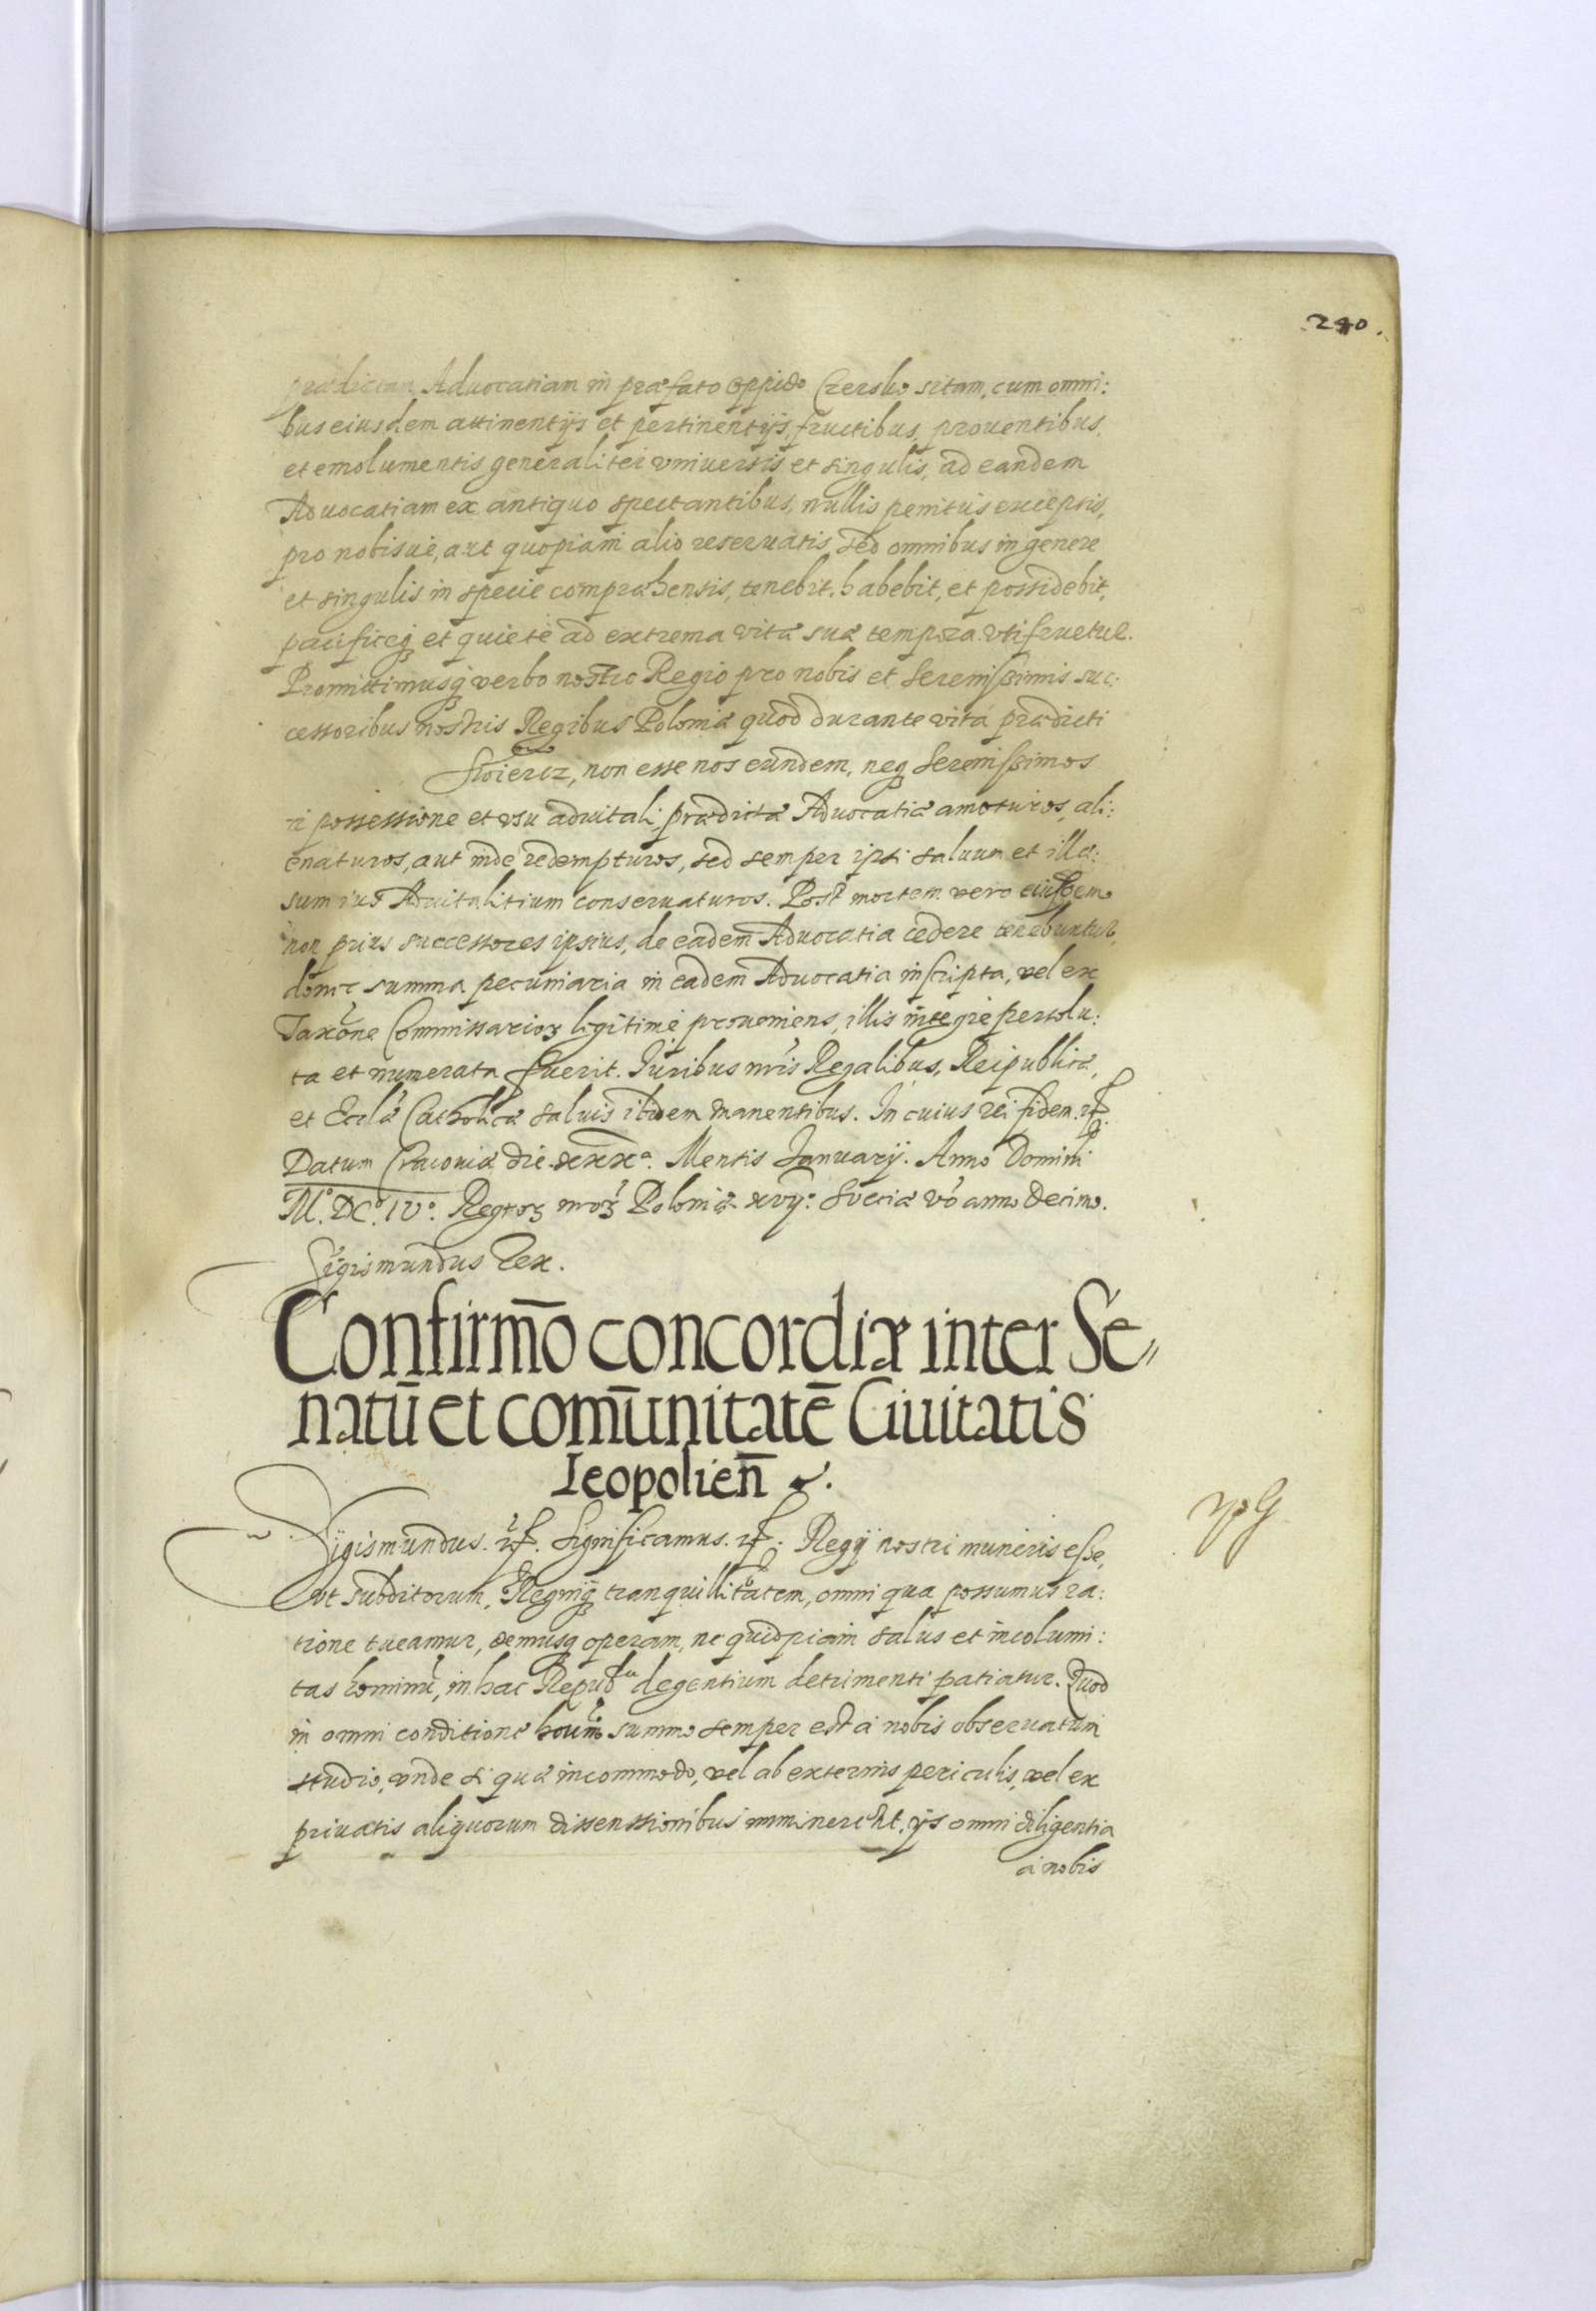 240.
prædictam Aduocatiam in præfato Oppido Czersko sitam, cum omni:
bus eiusdem attinentijs et pertinentijs, fructibus, prouentibus,
et emolumentis generaliter vniuersis et singulis, ad eandem
Aduocatiam ex antiquo spectantibus, nullis penitus exceptis,
pro nobisue, aut quopiam alio reseruatis, sed omnibus in genere
et singulis in specie compræhensis, tenebit, habebit, et possidebit,
pacificeq₃ et quiete ad extrema vitæ suæ tempora vtifruetur.
Promittimusq₃ verbo nostro Regio pro nobis et Serenissimis suc:
cessoribus nostris Regibus Poloniæ quod durante vita prædicti
Swiercz, non esse nos eundem, neq₃ Serenissimos
a possessione et vsu aduitali, prædictæ Aduocatiæ amoturos, ali:
enaturos, aut inde redempturos, sed semper ipsi saluum et illæ:
sum ius Aduitalitium conseruaturos. Post mortem vero eiusdem
non prius successores ipsius, de eadem Aduocatia cedere tenebuntur,
donec summa pecuniaria in eadem Aduocatia inscripta, vel ex
Taxõne Commissarioꝝ legitime proueniens, illis integre persolu:
ta et numerata fuerit. Iuribus nr̃is Regalibus, Reipublicæ,
et Ecclæ Catholicæ saluis ibidem manentibus. In cuius rei fidem. ꝛc̃.
Datum Cracouiæ die xxxᵃ. Mensis Ianuarij. Anno Domini
M.° DC.° IV°. Regnoꝝ nr̃oꝝ Poloniæ xvij°. Sueciæ vo anno decimo.
Sigismundus Rex.
Confirmo͞ concordiæ inter Se„
natū et com̄unitatē Ciuitatis
Leopolien̄.
Sigismundus. ꝛc̃. Significamus. ꝛc̃. Regij nostri muneris esse,
vt subditorum, Regniq₃ tranquillitatem, omni qua possumus ra:
tione tueamur, demusq₃ operam, ne quidpiam salus et incolumi:
tas hominũ, in hac Repubᶜᵃ degentium detrimenti patiatur. Quod
in omni conditione hoim̃ summo semper est a nobis obseruatum
studio, vnde si qua incommoda, vel ab externis periculis, vel ex
priuatis aliquorum dissenssionibus imminerent, ijs omni diligentia
a nobis